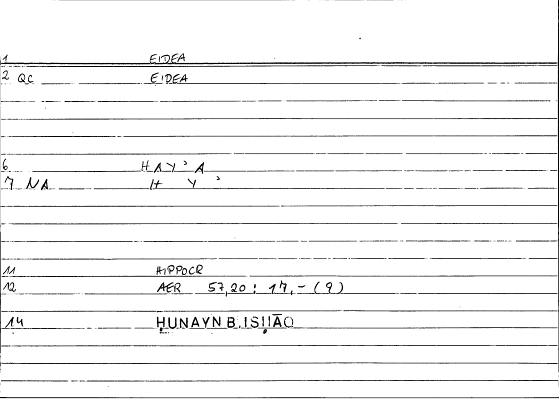 1 EIDEA
2 QC EIDEA
6 HAY ʾ A
7 NA H Y ʾ
11 HIPPOCR
12 AER 57,20 : 17,-(9)
14 ḤUNAYN B. ISḤĀQ